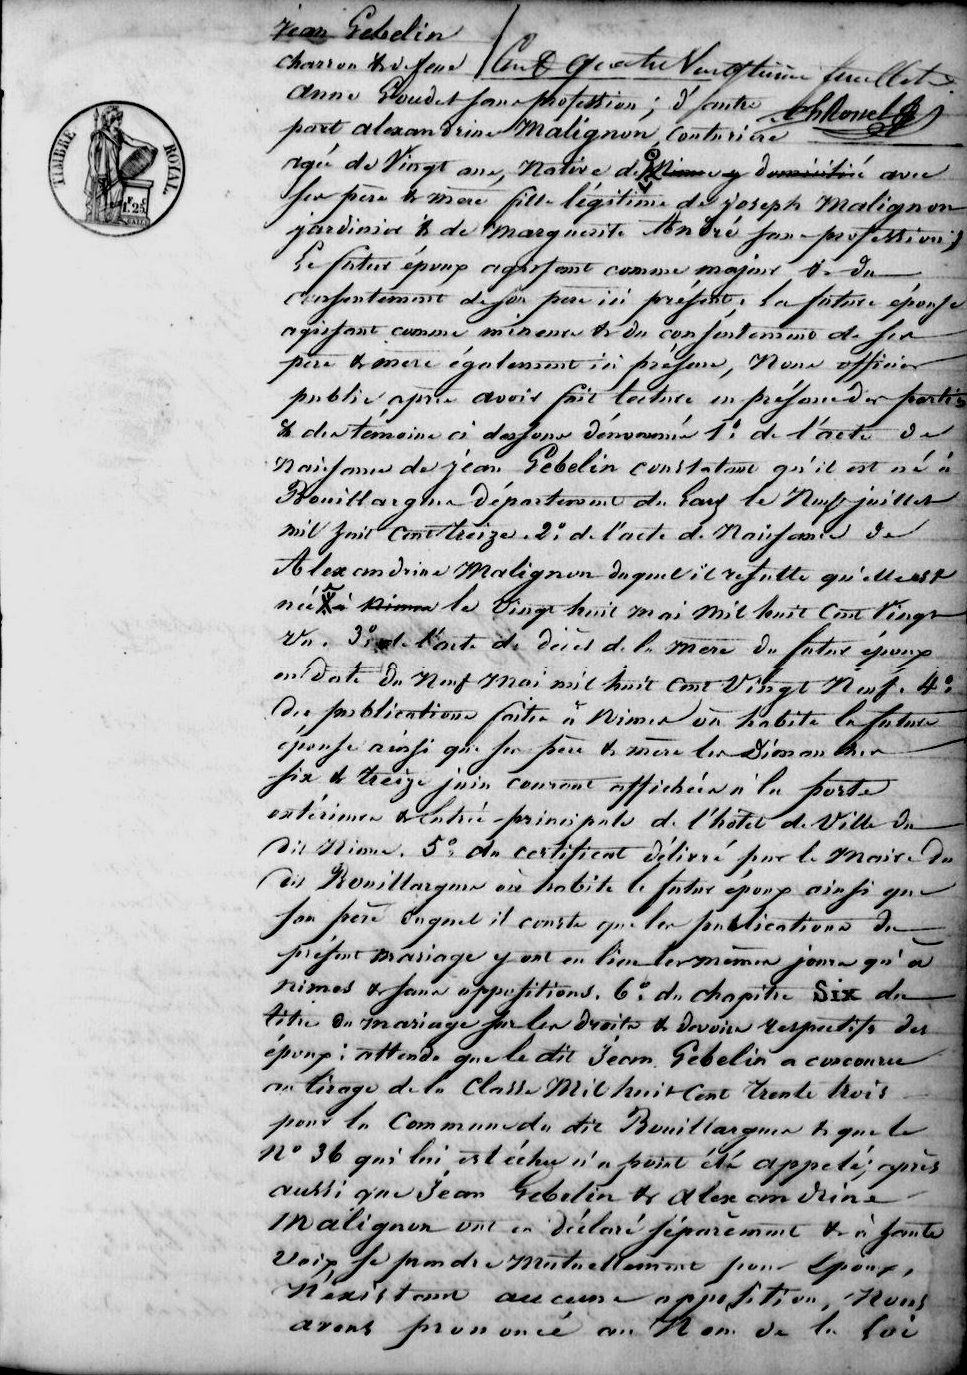 TIMBRE ROYAL
1 F. 25
Cent quatre Vingtième feuillet
Jean Gebelin
charron & de feue
anne Goudet sans profession ; d'autre
part alexandrine Malignon, Couturière
agée de Vingt ans, Native de Nimes y domiciliée avec
ses père & mère fille légitime de joseph Malignon
jardinier & de Marguerite André sans profession ;
Le futur époux agissant comme majeur & du
Consentement de son pere ici présent. la future épouse
agissant comme mineure & du consentement de ses
père & mère également ici présens, Nous officier
public après avoir fait lecture en présence des parties
& des témoins ci dessous dénommés 1º. de l'acte de
Naissance de jean Gebelin constatant qu'il est né à
Bouillargues département du Gard le Neuf juillet
mil huit cent treize. 2º. de l'acte de Naissance de
Alexandrine Malignon duquel il résulte qu'elle est
née à Nimes le Vingt huit mai mil huit Cent Vingt
Un. 3º. de l'acte de décès de la mère du futur époux
en date du Neuf Mai mil huit cent Vingt Neuf. 4º.
des publications faites à Nimes où habite la future
épouse ainsi que ses père & mère les Dimanches
six & treize juin courant affichées à la porte
extérieure & entrée principale de l'hôtel de Ville du
dit Nimes. 5º. du certificat délivré par le Maire du
dit Bouillargues où habite le futur époux ainsi que
son père duquel il conste que les publications du
présent mariage y ont eu lieu les mêmes jours qu'à
Nimes & sans oppositions. 6º. du chapitre Six du
titre du mariage sur les droits & devoirs respectifs des
époux : attendu que le dit Jean Gebelin a concouru
au tirage de la Classe Mil huit Cent trente trois
pour la Commune du dit Bouillargues & que le
Nº 36 qui lui est échu n'a point été appelé ; après
aussi que Jean Gebelin & alexandrine
Malignon ont eu déclaré séparément & à haute
Voix se prendre Mutuellement pour époux,
N'existant aucune opposition, Nous
avons prononcé au Nom de la Loi